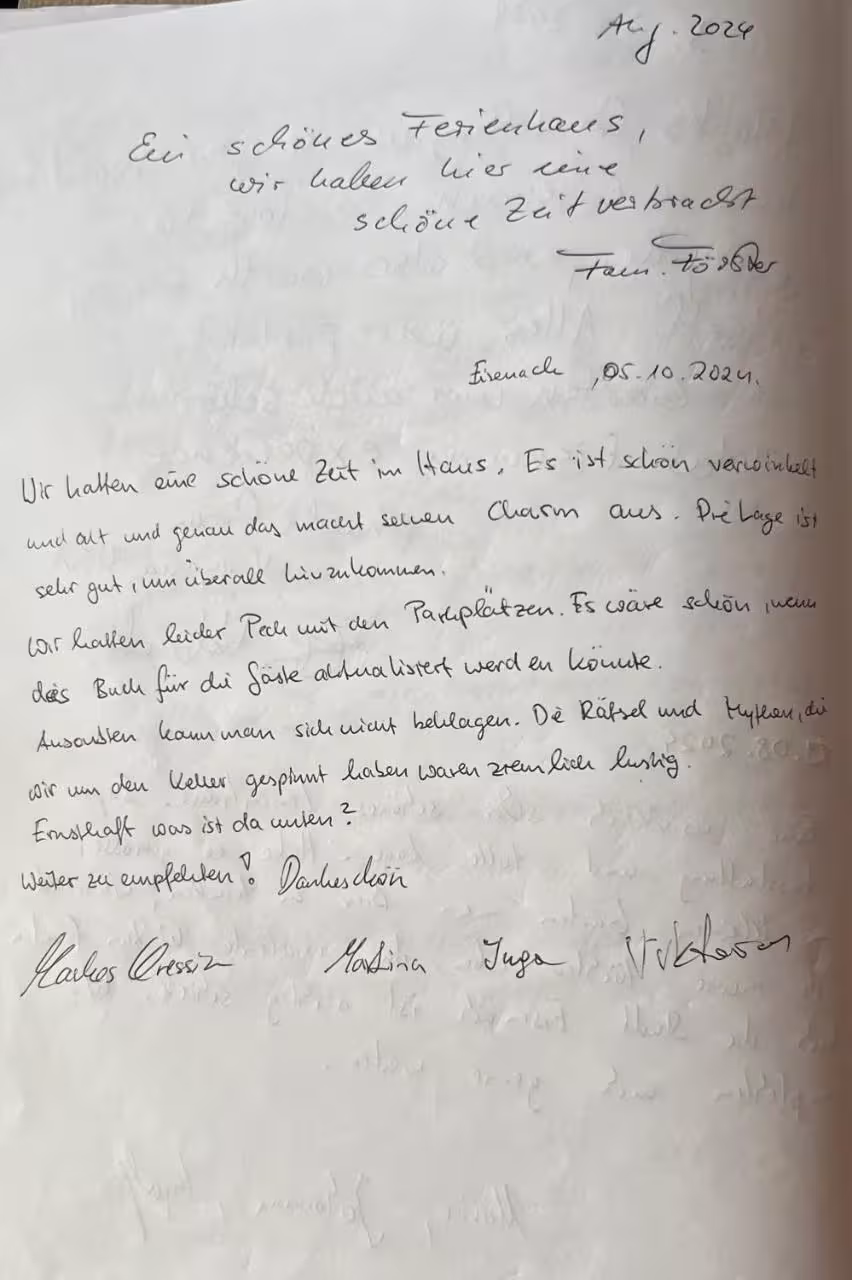 Aug. 2024
Ein schönes Ferienhaus,
wir haben hier eine
schöne Zeit verbracht
Fam. Förster
Eisenach, 05.10.2024.
Wir hatten eine schöne Zeit im Haus. Es ist schön verwinkelt
und alt und genau das macht seinen Charm aus. Die Lage ist
sehr gut, um überall hinzukommen.
Wir hatten leider Pech mit den Parkplätzen. Es wäre schön, wenn
das Buch für die Gäste aktualisiert werden könnte.
Ansonsten kann man sich nicht beklagen. Die Rätsel und Mythen, die
wir um den Keller gespinnt haben waren ziemlich lustig.
Ernsthaft was ist da unten?
Weiter zu empfehlen! Dankeschön
Martina Inga